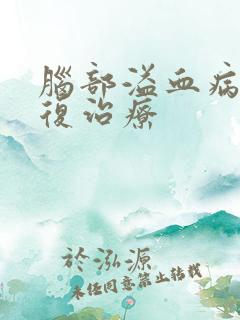 腦部溢血病
復治療
於泓源
未經同意禁止轉載